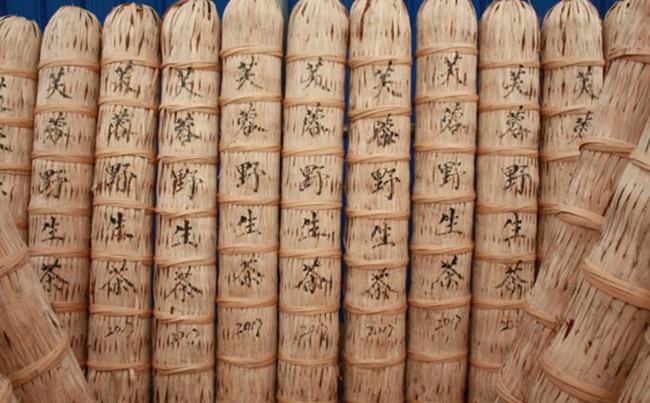 芙蓉野生茶
芙蓉野生茶 2017
芙蓉野生茶
芙蓉野生茶 2017
芙蓉野生茶 2017
芙蓉野生茶 2017
芙蓉野生茶 2017
芙蓉野生茶
芙蓉